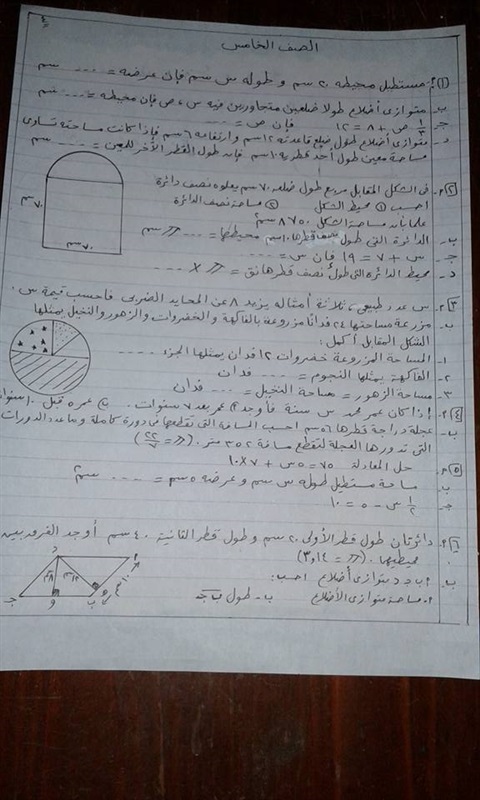 الصف الخامس
(١) أ. مستطيل محيطه ٢٠ سم وطوله س سم فإن عرضه = .... سم
ب. متوازى أضلاع طولا ضلعين متجاورين فيه س ، ص فإن محيطه = .... سم
ج. ١/٣ ص + ٨ = ١٢ فإن ص = ....
د. متوازى أضلاع طول ضلع قاعدته ١٢ سم وارتفاعه ٦ سم فإذا كانت مساحته تساوى
مساحة معين طول أحد قطريه ١٠ سم فإنه طول القطر الآخر للمعين = .... سم
(٢) أ. فى الشكل المقابل مربع طول ضلعه ٧٠ سم يعلوه نصف دائرة
احسب ① محيط الشكل ② مساحة نصف الدائرة
علما بأنه مساحة الشكل ٨٧٥٠ سم٢
ب. الدائرة التى طول قطرها ١٠ سم محيطها = .... π سم
ج. س + ٧ = ١٩ فإن س = ....
د. محيط الدائرة التى طول نصف قطرها نق = π × ....
(٣) أ. س عدد طبيعى ، ثلاثة أمثاله يزيد ٨ عن المحايد الضربى فاحسب قيمة س .
ب. مزرعة مساحتها ٢٤ فدانا مزروعة بالفاكهة والخضروات والزهور والنخيل يمثلها
الشكل المقابل أكمل :
١- المساحة المزروعة خضروات ١٢ فدان يمثلها الجزء ....
٢- الفاكهة يمثلها النجوم = .... فدان
٣- مساحة الزهور = مساحة النخيل = .... فدان
(٤) أ. إذا كان عمر محمد س سنة فأوجد ① عمره بعد ٧ سنوات . ② عمره قبل ١٠ سنوات
ب. عجلة دراجة قطرها ٥٦ سم احسب المسافة التى تقطعها فى دورة كاملة وما عدد الدورات
التى تدورها العجلة لتقطع مسافة ٣٥٢ متر . (π = ٢٢/٧)
(٥) أ. حل المعادلة ٧٥ = ٥س + ٧ × ١٠
ب. مساحة مستطيل طوله س سم وعرضه ٥ سم = .... سم٢
ج. ١/٢ س - ٥ = ١٠
(٦) أ. دائرتان طول قطر الأولى ٢٠ سم وطول قطر الثانية ٤٠ سم أوجد الفرق بين
محيطيهما . (π = ٣,١٤)
ب. أ ب ج د متوازى أضلاع احسب :
أ- مساحة متوازى الأضلاع ب- طول ب ج
٧٠ سم
٧٠ سم
أ
د
ب
ج
و
٨ سم
١٢ سم
١٠